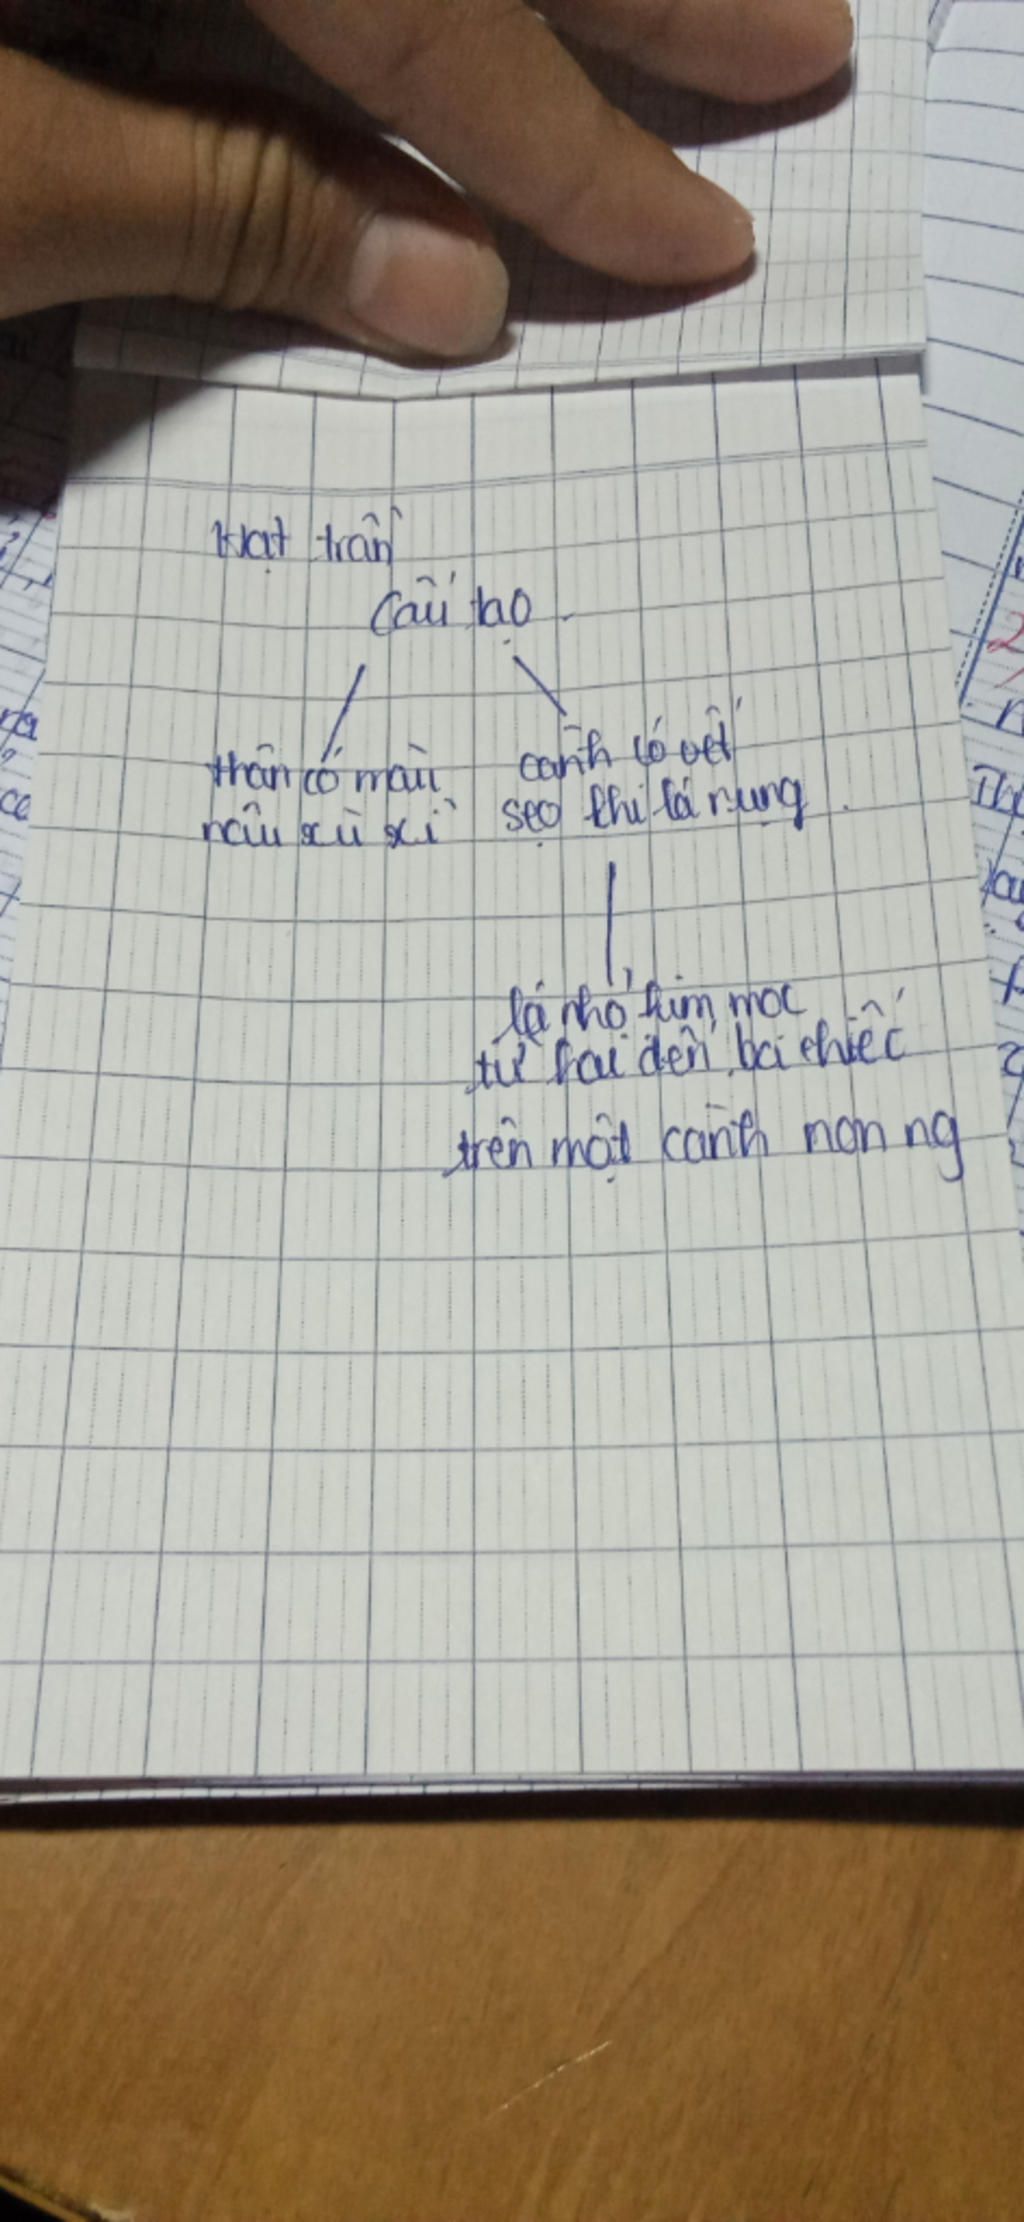 Hạt trần
Cấu tạo
thân có màu
nâu xù xì
cành có vết
sẹo khi lá rụng.
lá nhỏ kim mọc
từ hai đến ba chiếc
trên một cành non ng